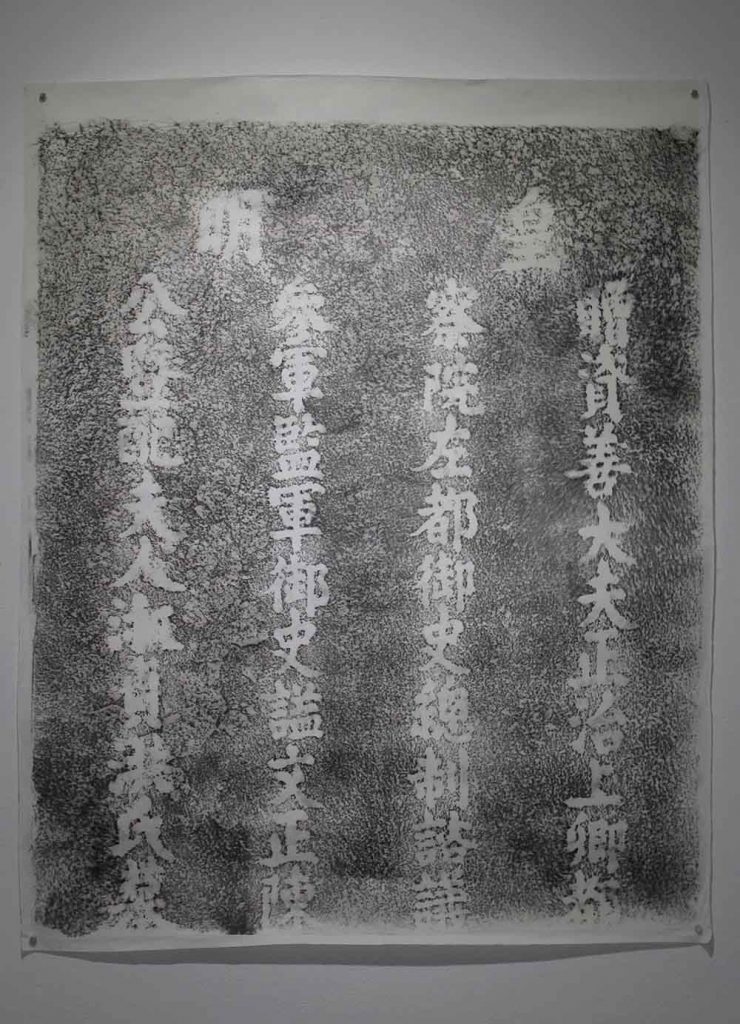 皇明
贈資善大夫正治上卿都
察院左都御史總制諮議
參軍監軍御史謚文正陳
公暨配夫人淑貞洪氏墓